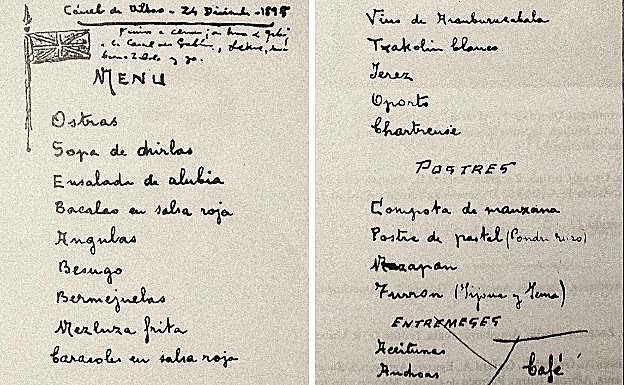 Cárcel de Bilbao - 24 Diciembre - 1895
MENU
Ostras
Sopa de chirlas
Ensalada de alubia
Bacalao en salsa roja
Angulas
Besugo
Bermejuelas
Mezluza frita
Caracoles en salsa roja
Vino de
Txakolin blanco
Jerez
Oporto
Chartreuse
POSTRES
Compota de manzana
Postre de pastel
Mazapan
Turron (Jijona y Yema)
ENTREMESES
Aceitunas
Anchoas
Café